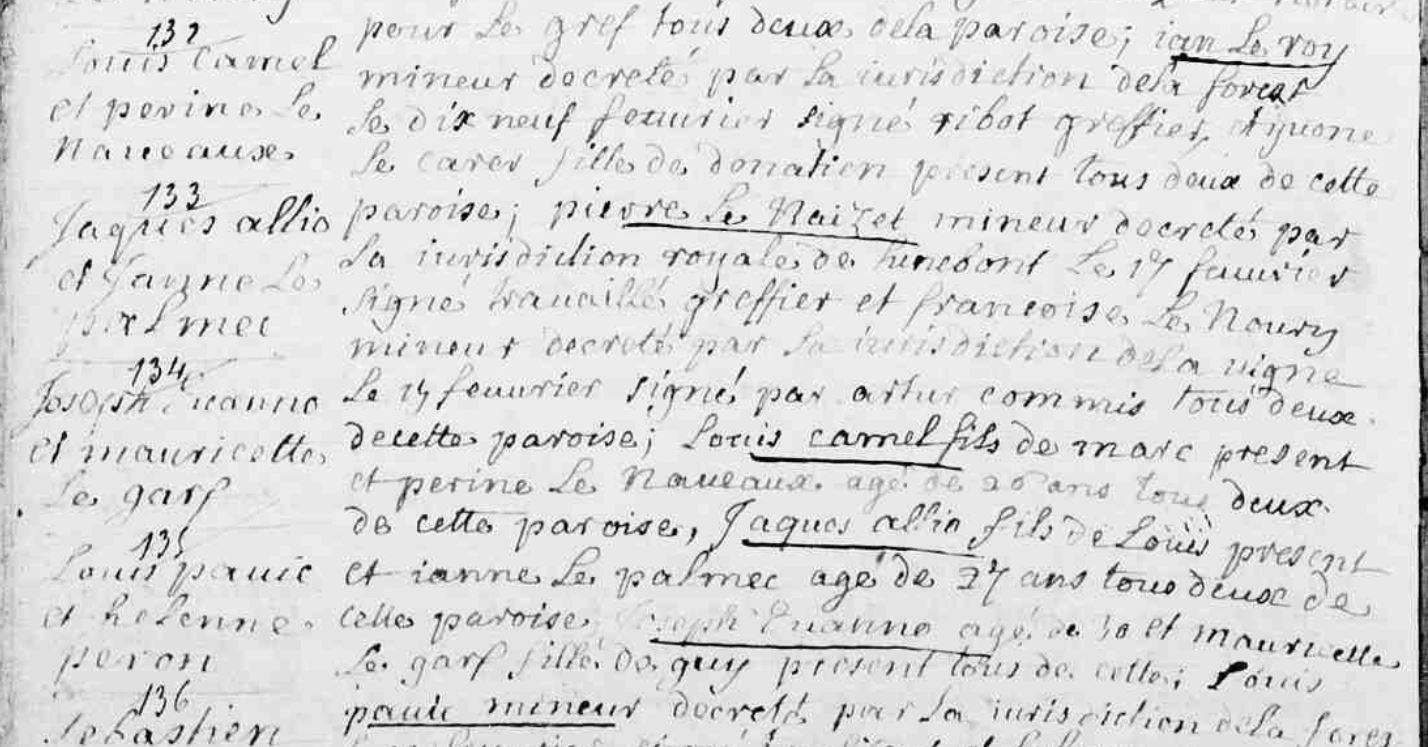 132
Louis Camel
et perine Le
Naueaux
133
Jaques allio
et Janne Le
palmec
134
Joseph Euanno
et mauricette
Le garf
135
Louis pauic
et helenne
peron
136
Sebastien
pour Le gref tous deux dela paroise; ian Le roy
mineur decreté par La iurisdiction dela forest
Le dix neuf feuurier signé ribot greffier, et yuone
Le carer fille de donatien present tous deux de cette
paroise; pierre Le Naizet mineur decreté par
La iurisdiction royale de henebont Le 17 feuurier
signé trauaillé greffier et francoise Le Noury
mineur decreté par La iurisdiction dela uigne
Le 17 feuurier signé par artur commis tous deux
decette paroise; Louis camel fils de marc present
et perine Le Naueaux agé de 26 ans tous deux
de cette paroise, Jaques allio fils de Loüis present
et ianne Le palmec agé de 27 ans tous deux de
cette paroise Joseph Euanno agé de 30 et mauricette
Le garf fille de guy present tous de cette; Louis
pauic mineur decreté par La iurisdiction dela forest